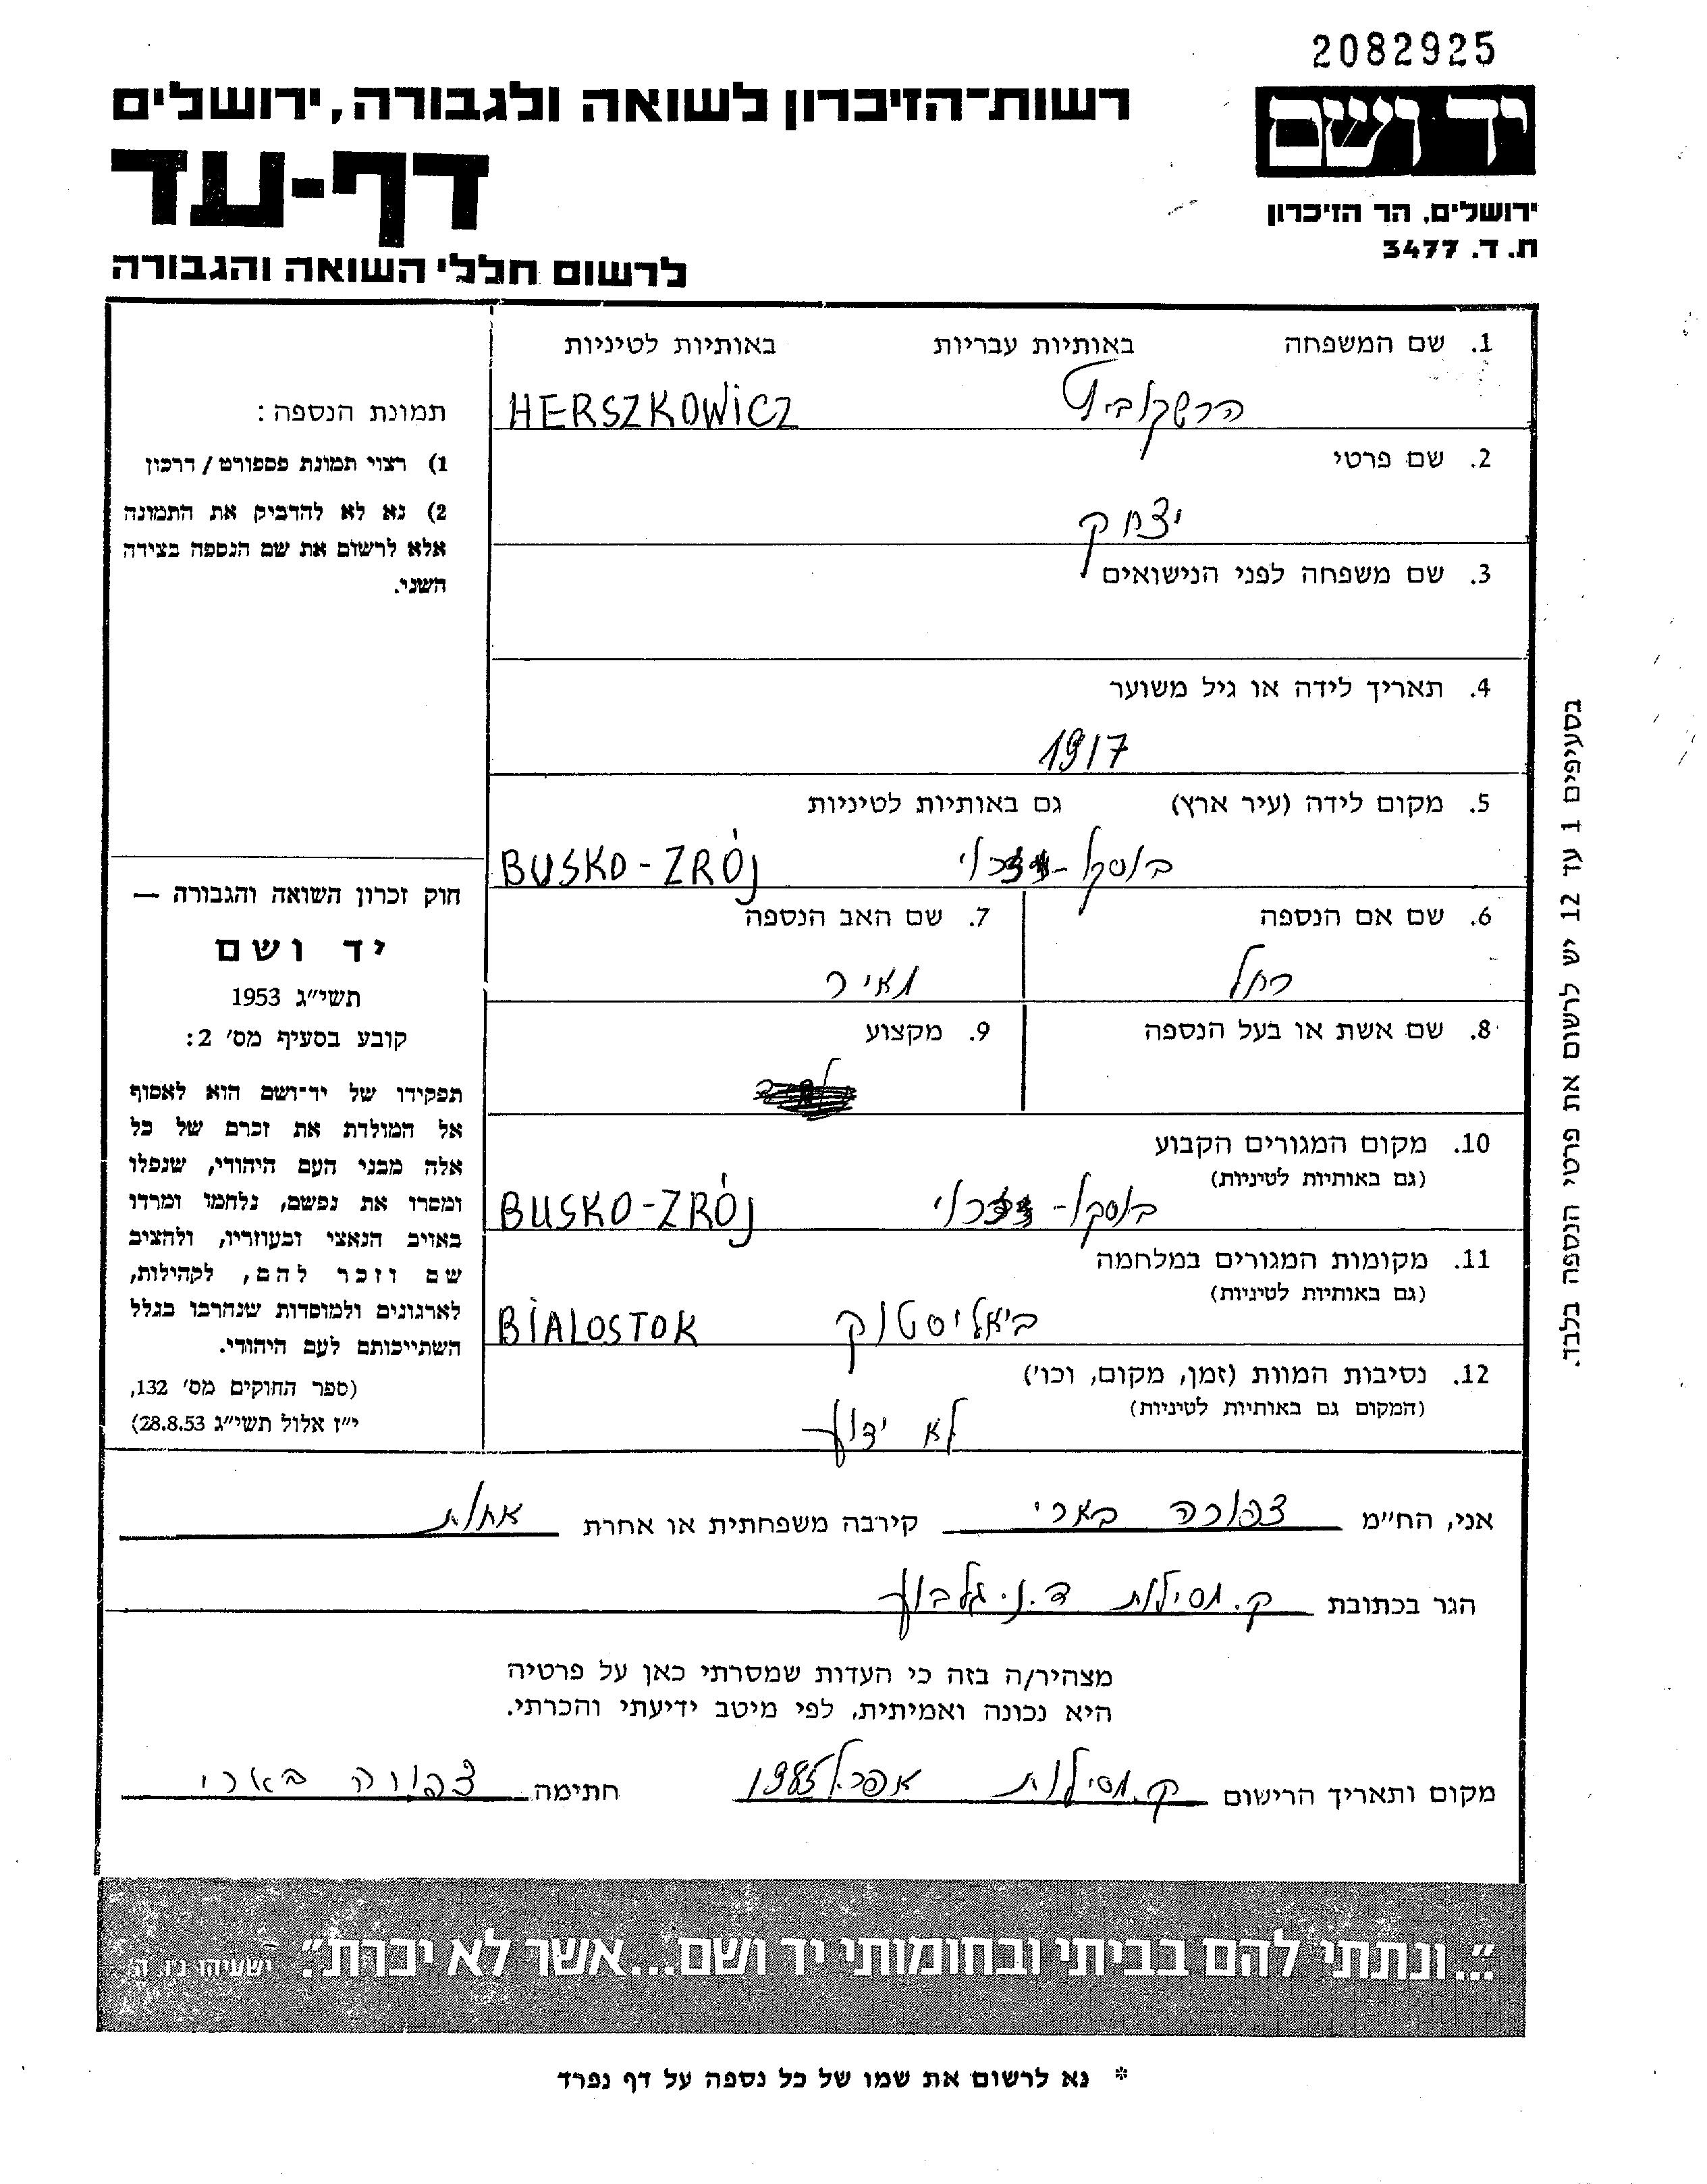 2082925
רשות־הזיכרון לשואה ולגבורה, ירושלים
יד ושם
דף-עד
ירושלים, הר הזיכרון
ת. ד. 3477
לרשום חללי השואה והגבורה
1. שם המשפחה באותיות עבריות באותיות לטיניות
הרשקוביץ HERSZKOWICZ
2. שם פרטי
יצחק
3. שם משפחה לפני הנישואים
4. תאריך לידה או גיל משוער
1917
5. מקום לידה (עיר ארץ) גם באותיות לטיניות
בוסקו- BUSKO-ZRÓJ
6. שם אם הנספה 7. שם האב הנספה
רחל מאיר
8. שם אשת או בעל הנספה 9. מקצוע
10. מקום המגורים הקבוע
(גם באותיות לטיניות)
בוסקו- BUSKO-ZRÓJ
11. מקומות המגורים במלחמה
(גם באותיות לטיניות)
ביאליסטוק BIALOSTOK
12. נסיבות המוות (זמן, מקום, וכו')
(המקום גם באותיות לטיניות)
לא ידוע
תמונת הנספה:
1) רצוי תמונת פספורט / דרכון
2) נא לא להדביק את התמונה
אלא לרשום את שם הנספה בצידה
השני.
חוק זכרון השואה והגבורה —
יד ושם
תשי"ג 1953
קובע בסעיף מס' 2:
תפקידו של יד־ושם הוא לאסוף
אל המולדת את זכרם של כל
אלה מבני העם היהודי, שנפלו
ומסרו את נפשם, נלחמו ומרדו
באויב הנאצי ובעוזריו, ולהציב
שם וזכר להם, לקהילות,
לארגונים ולמוסדות שנחרבו בגלל
השתייכותם לעם היהודי.
(ספר החוקים מס' 132,
י"ז אלול תשי"ג 28.8.53)
בסעיפים 1 עד 12 יש לרשום את פרטי הנספה בלבד.
אני, הח"מ צפורה בארי קירבה משפחתית או אחרת אחות
הגר בכתובת ק. מסילות ד.נ. גלבוע
מצהיר/ה בזה כי העדות שמסרתי כאן על פרטיה
היא נכונה ואמיתית, לפי מיטב ידיעתי והכרתי.
מקום ותאריך הרישום ק. מסילות אפריל 1985 חתימה צפורה בארי
"...ונתתי להם בביתי ובחומותי יד ושם...אשר לא יכרת". ישעיהו נ"ו, ה'
* נא לרשום את שמו של כל נספה על דף נפרד